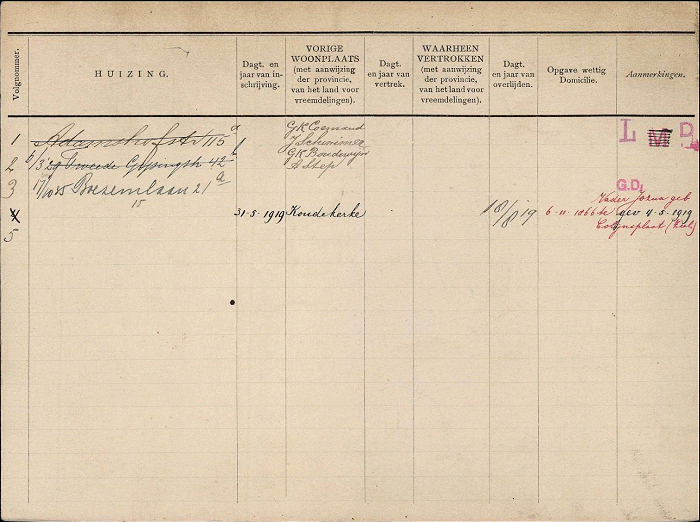 Volgnommer.
HUIZING.
Dagt. en
jaar van in-
schrijving.
VORIGE
WOONPLAATS
(met aanwijzing
der provincie,
van het land voor
vreemdelingen).
Dagt.
en jaar van
vertrek.
WAARHEEN
VERTROKKEN
(met aanwijzing
der provincie,
van het land voor
vreemdelingen).
Dagt.
en jaar van
overlijden.
Opgave wettig
Domicilie.
Aanmerkingen.
1 Adamshofstr 115 a
G.K. Cosmand
J Schrimmer
G.K Boudewijn
A Step
L M D
2 1/3 29 Tweede Gijsingstr 42 b
3 17/10 35 Brezemlaan 21 a
15
G.D.
Vader Jozua geb
31-5-1919 Koudekerke
18/8/19
6-11-1866 te
gev 9-5-1919
Colijnsplaat
5